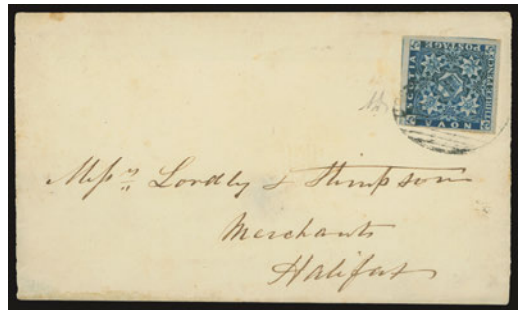 NOVA
SCOTIA
POSTAGE
THREE PENCE
Mess.rs Lordly & Stimpson
Merchants
Halifax